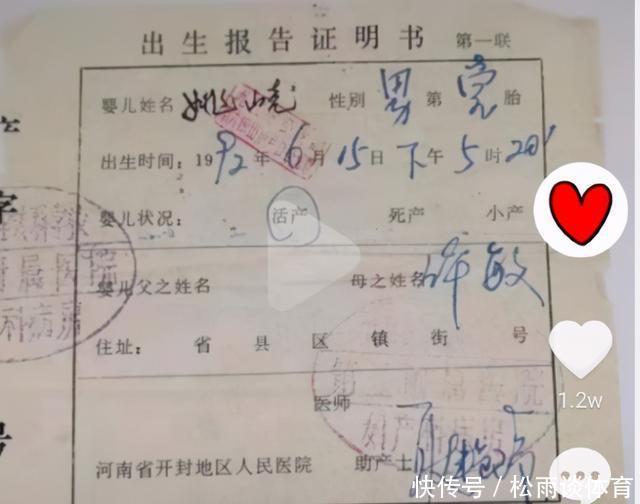 出生报告证明书 第一联
婴儿姓名 姚 性别 男 第 胎
出生时间：1992年6月15日下午5时20'
婴儿状况： 活产 死产 小产
婴儿父之姓名 母之姓名 许敏
住址： 省 县 区 镇 街 号
医师
河南省开封地区人民医院 助产士
字
号
属医院
科病
附属医院
妇产
1.2w
快传号/松雨谈体育